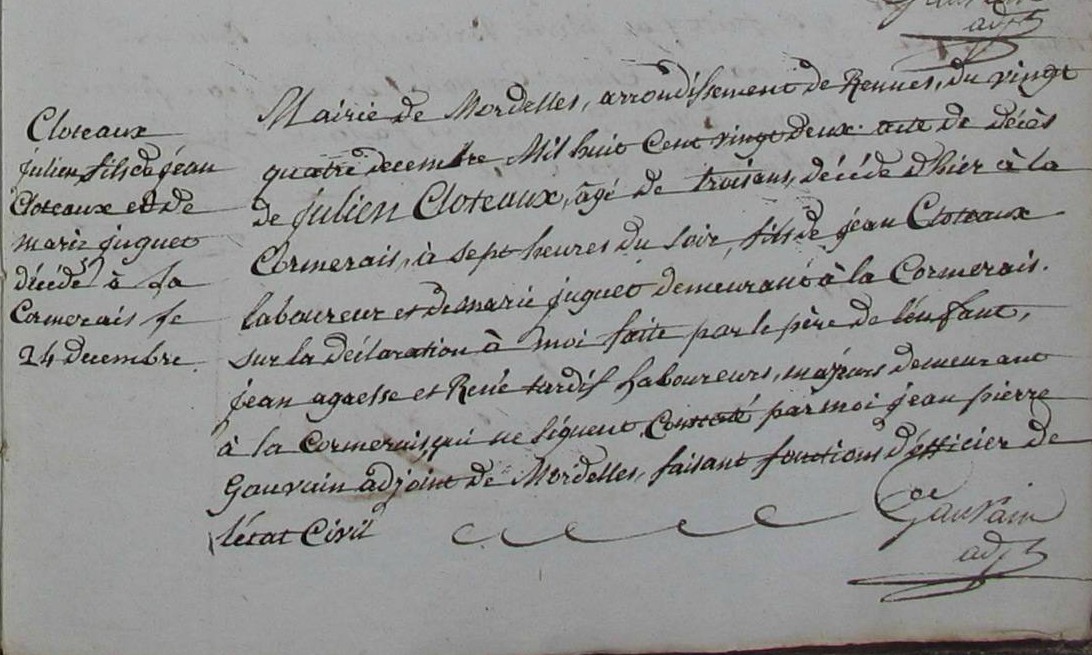 Gauvain
adjt
Cloteaux
julien fils de jean
Cloteaux et de
marie juguet
décédé à la
Cormerais le
24 decembre.
Mairie de Mordelles, arrondissement de Rennes, du vingt
quatre decembre Mil huit Cent vingt deux. acte de décès
de julien Cloteaux, âgé de trois ans, décédé d'hier à la
Cormerais, à sept heures du soir, fils de jean Cloteaux
laboureur et de marie juguet demeurant à la Cormerais.
sur la déclaration à moi faite par le père de l'enfant,
jean agaesse et René tardif laboureurs, majeurs demeurant
à la Cormerais, qui ne signent, Constaté par moi jean pierre
Gauvain adjoint de Mordelles, faisant fonctions d'officier de
l'état Civil
Gauvain
adjt